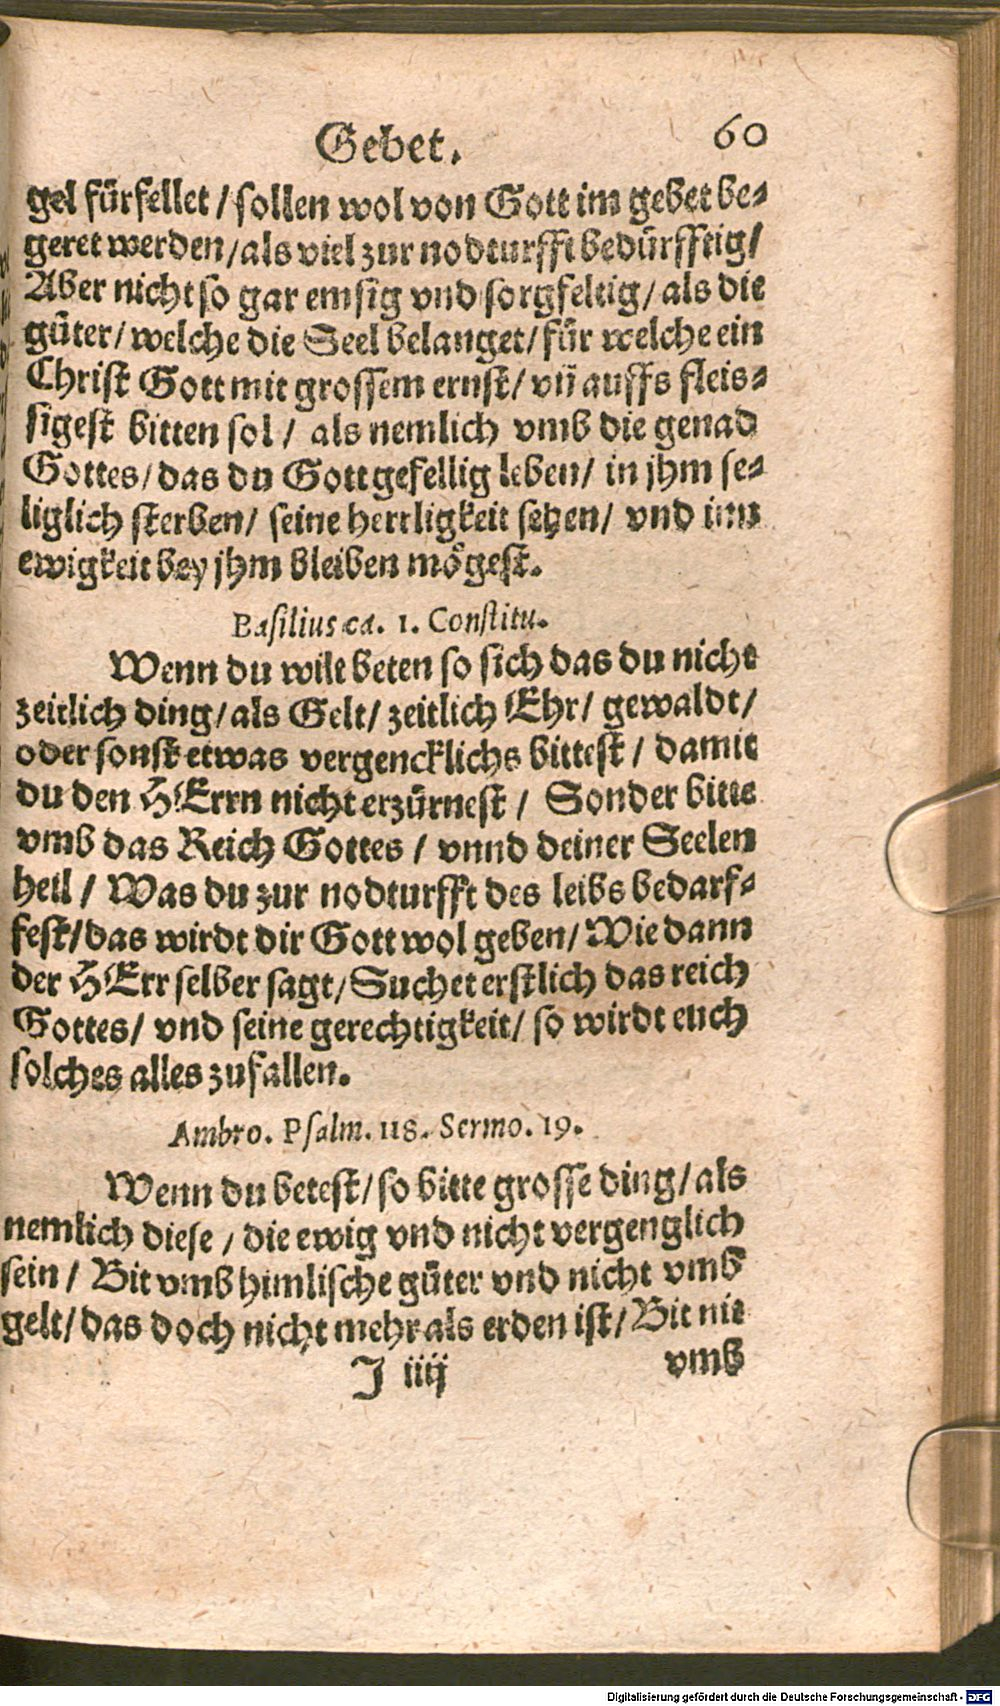 Gebet. 60
gel fürfellet / sollen wol von Gott im gebet be-
geret werden / als viel zur nodturfft bedürfftig /
Aber nicht so gar emsig vnd sorgfeltig / als die
güter / welche die Seel belanget / für welche ein
Christ Gott mit grossem ernst / vñ auffs fleis-
sigest bitten sol / als nemlich vmb die genad
Gottes / das du Gott gefellig leben / in jhm se-
liglich sterben / seine herrligkeit sehen / vnd inn
ewigkeit bey jhm bleiben mögest.
Basilius ca. 1. Constitu.
Wenn du wilt beten so sich das du nicht
zeitlich ding / als Gelt / zeitlich Ehr / gewaldt /
oder sonst etwas vergencklichs bittest / damit
du den HErrn nicht erzürnest / Sonder bitte
vmb das Reich Gottes / vnnd deiner Seelen
heil / Was du zur nodturfft des leibs bedarf-
fest / das wirdt dir Gott wol geben / Wie dann
der HErr selber sagt / Suchet erstlich das reich
Gottes / vnd seine gerechtigkeit / so wirdt euch
solches alles zufallen.
Ambro. Psalm. 118. Sermo. 19.
Wenn du betest / so bitte grosse ding / als
nemlich diese / die ewig vnd nicht vergenglich
sein / Bit vmb himlische güter vnd nicht vmb
gelt / das doch nicht mehr als erden ist / Bit nit
J iiij vmb
Digitalisierung gefördert durch die Deutsche Forschungsgemeinschaft - DFG